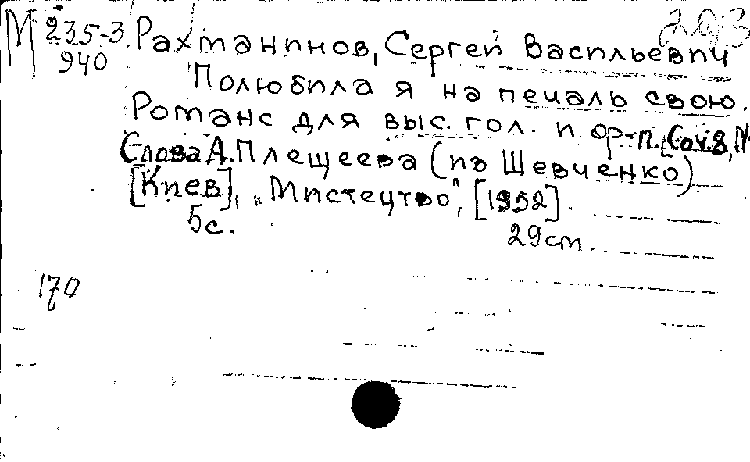 М 235-3 203
940
Рахманинов, Сергей Васильевич
Полюбила я на печаль свою.
Романс для выс. гол. и ф-п. [Соч. 8, №
Слова А. Плещеева (из Шевченко)
[Киев], „Мистецтво", [1952].
5с. 29 cm.
170